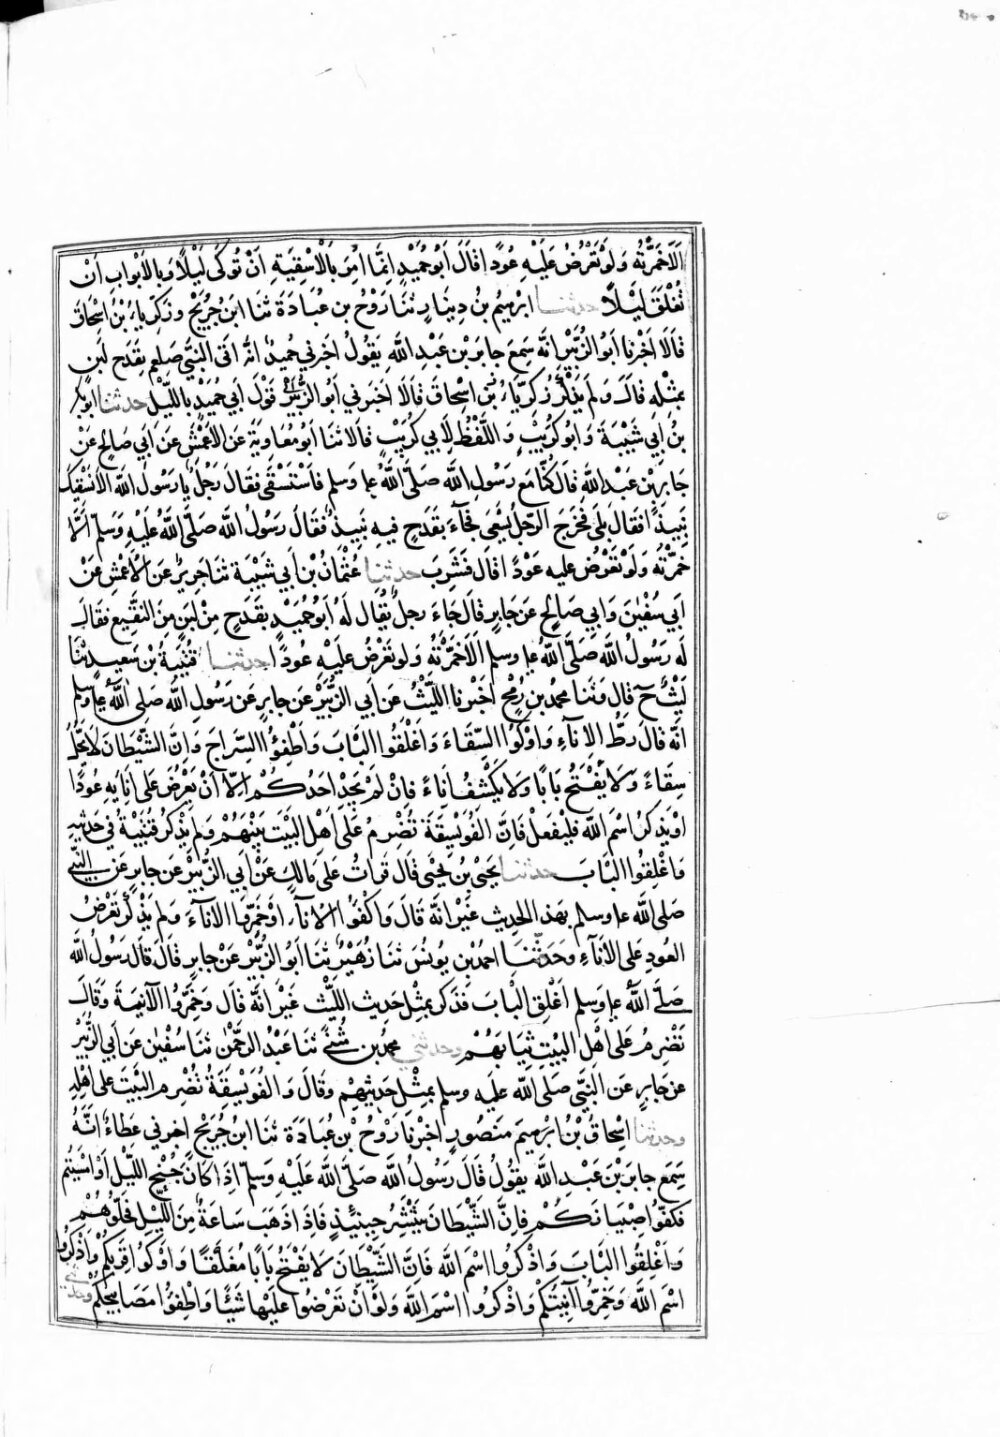 اَلَا خَمَّرْتُهُ وَلَوْ تَعْرُضُ عَلَيْهِ عُودًا قَالَ أَبُو حُمَيْدٍ اِنَّمَا أُمِرَ بِالْاَسْقِيَةِ اَنْ تُوكَى لَيْلًا وَبِالْاَبْوَابِ اَنْ
تُغْلَقَ لَيْلًا حدثنا ابرهيم بن دينار ثنا روح بن عبادة ثنا ابن جريج وزكرياء بن اسحاق
قالا اخبرنا ابو الزبير انه سمع جابر بن عبد الله يقول اخبرني حميد انه اتى النبي صلعم بقدح لبن
بمثله قال ولم يذكر زكرياء بن اسحاق قالا اخبرني ابو الزبير قول ابي حميد بالليل حدثنا ابو بكر
بن ابي شيبة وابو كريب واللفظ لابي كريب قالا ثنا ابو معاوية عن الاعمش عن ابي صالح عن
جابر بن عبد الله قال كنا مع رسول الله صلى الله علم وسلم فاستسقى فقال رجل يا رسول الله الا نسقيك
نبيذا فقال بلى فخرج الرجل يسعى فجاء بقدح فيه نبيذ فقال رسول الله صلى الله عليه وسلم الا
خمرته ولو تعرض عليه عودا قال فشرب حدثنا عثمان بن ابي شيبة ثنا جرير عن الاعمش عن
ابي سفين وابي صالح عن جابر قال جاء رجل يقال له ابو حميد بقدح من لبن من النقيع فقال
له رسول الله صلى الله علم وسلم الا خمرته ولو تعرض عليه عودا حدثنا قتيبة بن سعيد ثنا
ليث ح قال وثنا محمد بن رمح اخبرنا الليث عن ابي الزبير عن جابر عن رسول الله صلى الله علم وسلم
انه قال غطوا الاناء واوكوا السقاء واغلقوا الباب واطفؤا السراج وان الشيطان لا يحل
سقاء ولا يفتح بابا ولا يكشف اناء فان لم يجد احدكم الا ان يعرض على انايه عودا
او يذكر اسم الله فليفعل فان الفويسقة تضرم على اهل البيت بيتهم ولم يذكر قتيبة في حديثه
واغلقوا الباب حدثنا يحيى بن يحيى قال قرات على مالك عن ابي الزبير عن جابر عن النبي
صلى الله علم وسلم بهذا الحديث غير انه قال واكفؤا الاناء او خمروا الاناء ولم يذكر تعرض
العود على الاناء وحدثنا احمد بن يونس ثنا زهير ثنا ابو الزبير عن جابر قال قال رسول الله
صلى الله علم وسلم اغلق الباب فذكر بمثل حديث الليث غير انه قال وخمروا الآنية وقال
تضرم على اهل البيت ثيابهم وحدثني محمد بن مثنى ثنا عبد الرحمن ثنا سفين عن ابي الزبير
عن جابر عن النبي صلى الله عليه وسلم بمثل حديثهم وقال والفويسقة تضرم البيت على اهله
وحدثنا اسحاق بن ابرهيم منصور اخبرنا روح بن عبادة ثنا ابن جريج اخبرني عطاء انه
سمع جابر بن عبد الله يقول قال رسول الله صلى الله عليه وسلم اذا كان جنح الليل او امسيتم
فكفوا صبيانكم فان الشيطان ينتشر حينيذ فاذا ذهب ساعة من الليل فخلوهم
واغلقوا الباب واذكروا اسم الله فان الشيطان لا يفتح بابا مغلقا واوكوا قربكم واذكروا
اسم الله وخمروا آنيتكم واذكروا اسم الله ولو ان تعرضوا عليها شيئا واطفؤا مصابيحكم وحدثني